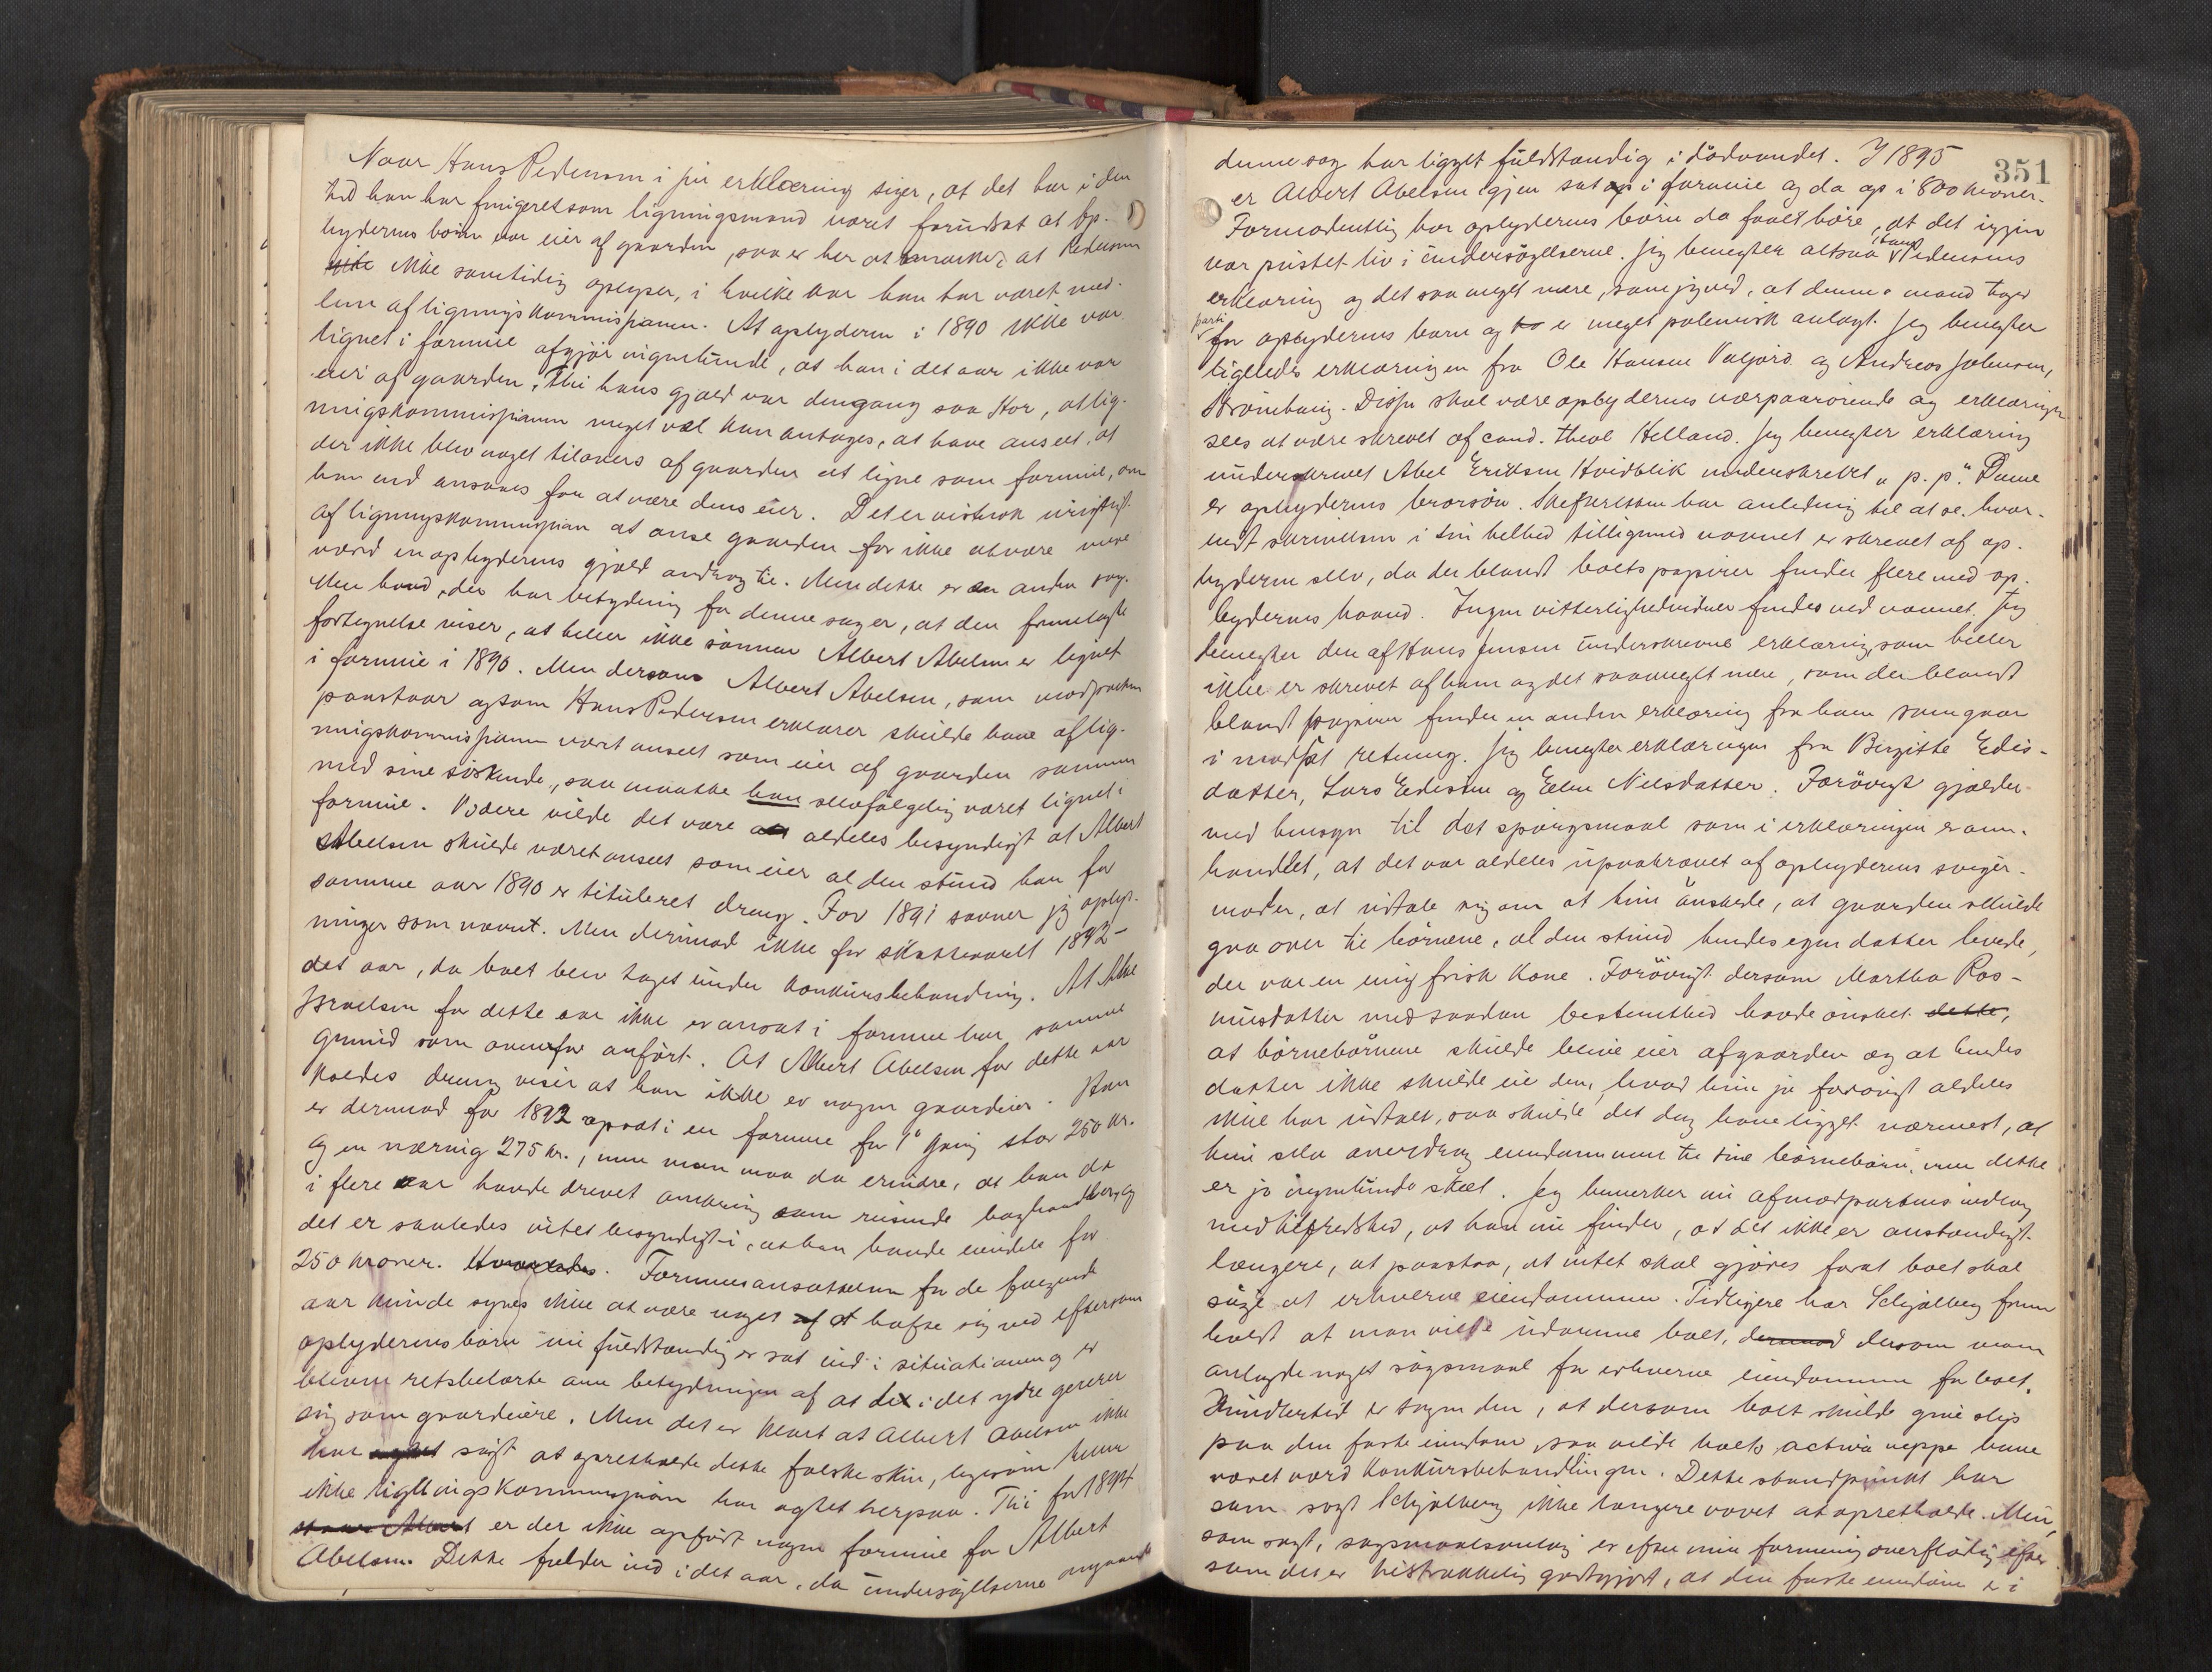 Naar Hans Pedersen i sin erklæring siger, at det har i den
tid han har fungeret som ligningsmand været forudsat at op-
byderens börn var eier af gaarden, saa er her at bemærke, at Pedersen
ikke samtidig oplyser, i hvilke aar han har været med-
lem af ligningskommissionen. At opbyderen i 1890 ikke var
lignet i formue afgjör ingenlunde, at han i det aar ikke var
eier af gaarden. Thi hans gjæld var dengang saa stor, at lig-
ningskommissionen meget vel kan antages, at have anseet, at
der ikke blev noget tilovers af gaarden at ligne som formue, om
han end ansaaes for at være dens eier. Det er vistnok urigtigt
af ligningskommissionen at anse gaarden for ikke at være mere
værd en opbyderens gjæld androg til. Men dette er en anden sag.
Men hvad, der har betydning for denne sag er, at den fremlagte
fortegnelse viser, at heller ikke sönnen Albert Abelsen er lignet
i formue i 1890. Men dersom Albert Abelsen, som modparten
paastaar og som Hans Pedersen erklærer skulde have af lig-
ningskommissionen vært anseet som eier af gaarden sammen
med sine söskende, saa maatte han selvfölgelig været lignet i
formue. Videre vilde det være aldeles besynderligt at Albert
Abelsen skulde været anseet som eier al den stund han for
samme aar 1890 er tituleret dreng. For 1891 savner jeg oplys-
ninger som nævnt. Men derimod ikke for skatteaaret 1892 -
det aar, da boet blev taget under konkursbehandling. At Abel
Israelsen for dette aar ikke er ansat i formue har samme
grund som ovenfor anfört. At Albert Abelsen for dette aar
kaldes dreng viser at han ikke er nogen gaardeier. Han
er dermod for 1892 opsat i en formue for 1ste gang stor 250 kr.
og en næring 275 kr., men man maa da erindre, at han da
i flere aar havde drevet omkring som reisende boghandler, og
det er saaledes intet besynderligt i, at han havde eiendele for
250 kroner. Formuesansættelsen for de fölgende
aar kunde synes ikke at være noget at hæfte sig ved eftersom
opbyderens börn nu fuldstændig er sat ind i situationen og er
bleven retsbelærte om betydningen af at de i det ydre gererer
sig som gaardeiere. Men det er klart at Albert Abelsen ikke
har sögt at opretholde dette falske skin, ligesom heller
ikke ligningskommissionen har agtet herpaa. Thi for 1894
er der ikke opfört nogen formue for Albert
Abelsen. Dette falder ind i det aar, da undersögelserne angaaende
351
denne sag har ligget fuldstændig i dödvandet. I 1895
er Albert Abelsen igjen sat op i formue og da op i 800 kroner.
Formodentlig har opbyderens börn da faaet höre, at det igjen
var pustet liv i undersögelserne. Jeg benegter altsaa Hans Pedersens
erklæring og det saa meget mere, som jeg ved, at denne mand tager
parti for opbyderens börn og er meget polemisk anlagt. Jeg benegter
ligeledes erklæringen fra Ole Hansen Valjord og Andreas Johnsen,
Strömhaug. Disse skal være opbyderens nærpaarörende og erklæringen
sees at være skrevet af cand. theol Helland. Jeg benegter erklæring
underskrevet Abel Eriksen Hvidblik underskrevet "p. p." Denne
er opbyderens brorsön. Skifteretten har anledning til at se, hvor-
ledt skrivelsen i sin helhed tilligemed navnet er skrevet af op-
byderen selv, da der blandt boets papirer findes flere med op-
byderens haand. Ingen vitterlighedsvidner findes ved navnet. Jeg
benegter den af Hans Jensen underskrevne erklæring, som heller
ikke er skrevet af ham og det saameget mere, som der blandt
blandt papirer findes en anden erklæring fra ham som gaar
i modsat retning. Jeg benegter erklæringen fra Birgitte Edis-
datter, Lars Edissen og Ellen Nilsdatter. Forövrigt gjælder
med hensyn til det spörgsmaal som i erklæringen er om-
handlet, at det var aldeles upaakrævet af opbyderens sviger-
moder, at udtale sig om at hun önskede, at gaarden skulde
gaa over til börnene, al den stund hendes egen datter levede,
der var en ung frisk kone. Forövrigt dersom Martha Ras-
musdatter med saadan bestemthed havde önsket dette,
at börnebörnene skulde blive eier af gaarden og at hendes
datter ikke skulde eie den, hvad hun jo forövrigt aldeles
ikke har udtalt, saa skulde det dog have ligget nærmest, at
hun selv overdrog eiendommen til sine börnebörn, men dette
er jo ingenlunde skeet. Jeg bemerker nu af modpartens indlæg
med tilfredshed, at han nu finder, at det ikke er anstændigt
længere, at paastaa, at intet skal gjöres forat boet skal
söge at erhverve eiendommen. Tidligere har Schjölberg frem
holdt at man vilde udtömme boet, dersom man
anlagde noget sögsmaal for erhverve eiendommen for boet.
Imidlertid er sagen den, at dersom boet skulde give slip
paa den faste eiendom, saa vilde boets activa neppe have
været værd konkursbehandlingen. Dette standpunkt har
som sagt Schjölberg ikke længere vovet at opretholde. Men,
som sagt, sagsmaalsanlæg er efter min formening overflödig efter
som det er tilstrækkelig godtgjort, at den faste eiendom er i